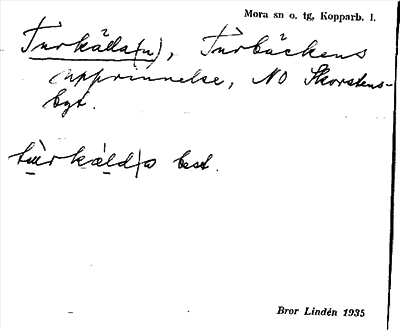 Mora sn o. tg, Kopparb. l.
Turkälla(n), Turbäckens
upprinnelse, NO Skorstens-
byt.
best.
Bror Lindén 1935